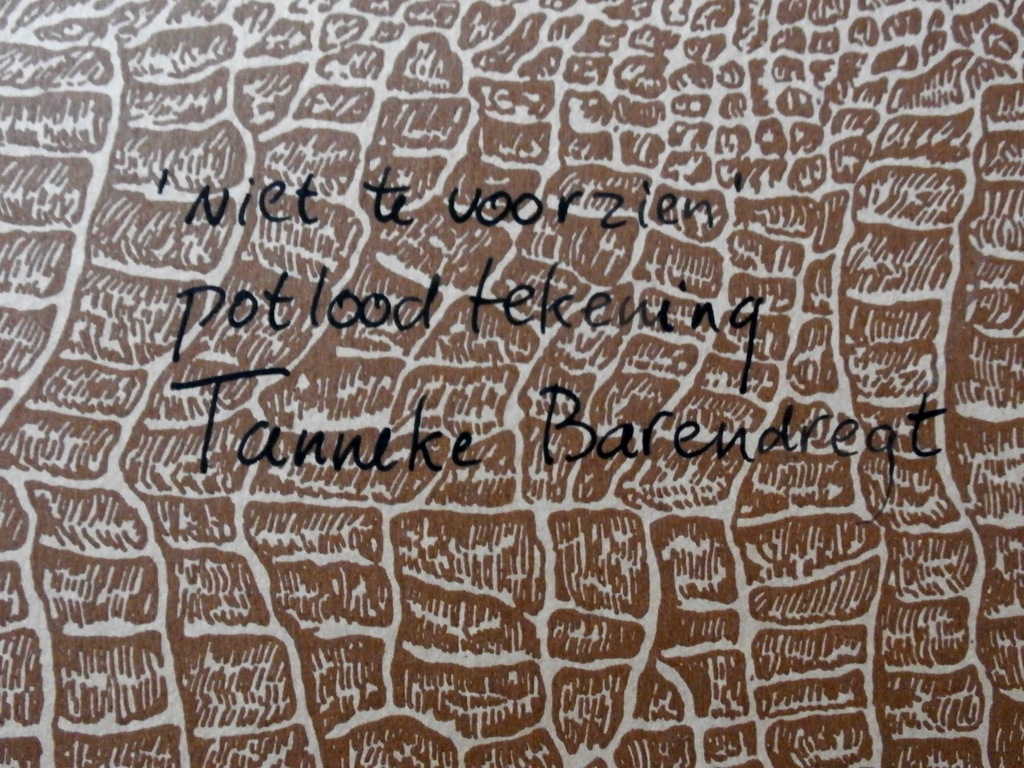 'niet te voorzien'
potlood tekening
Tanneke Barendregt